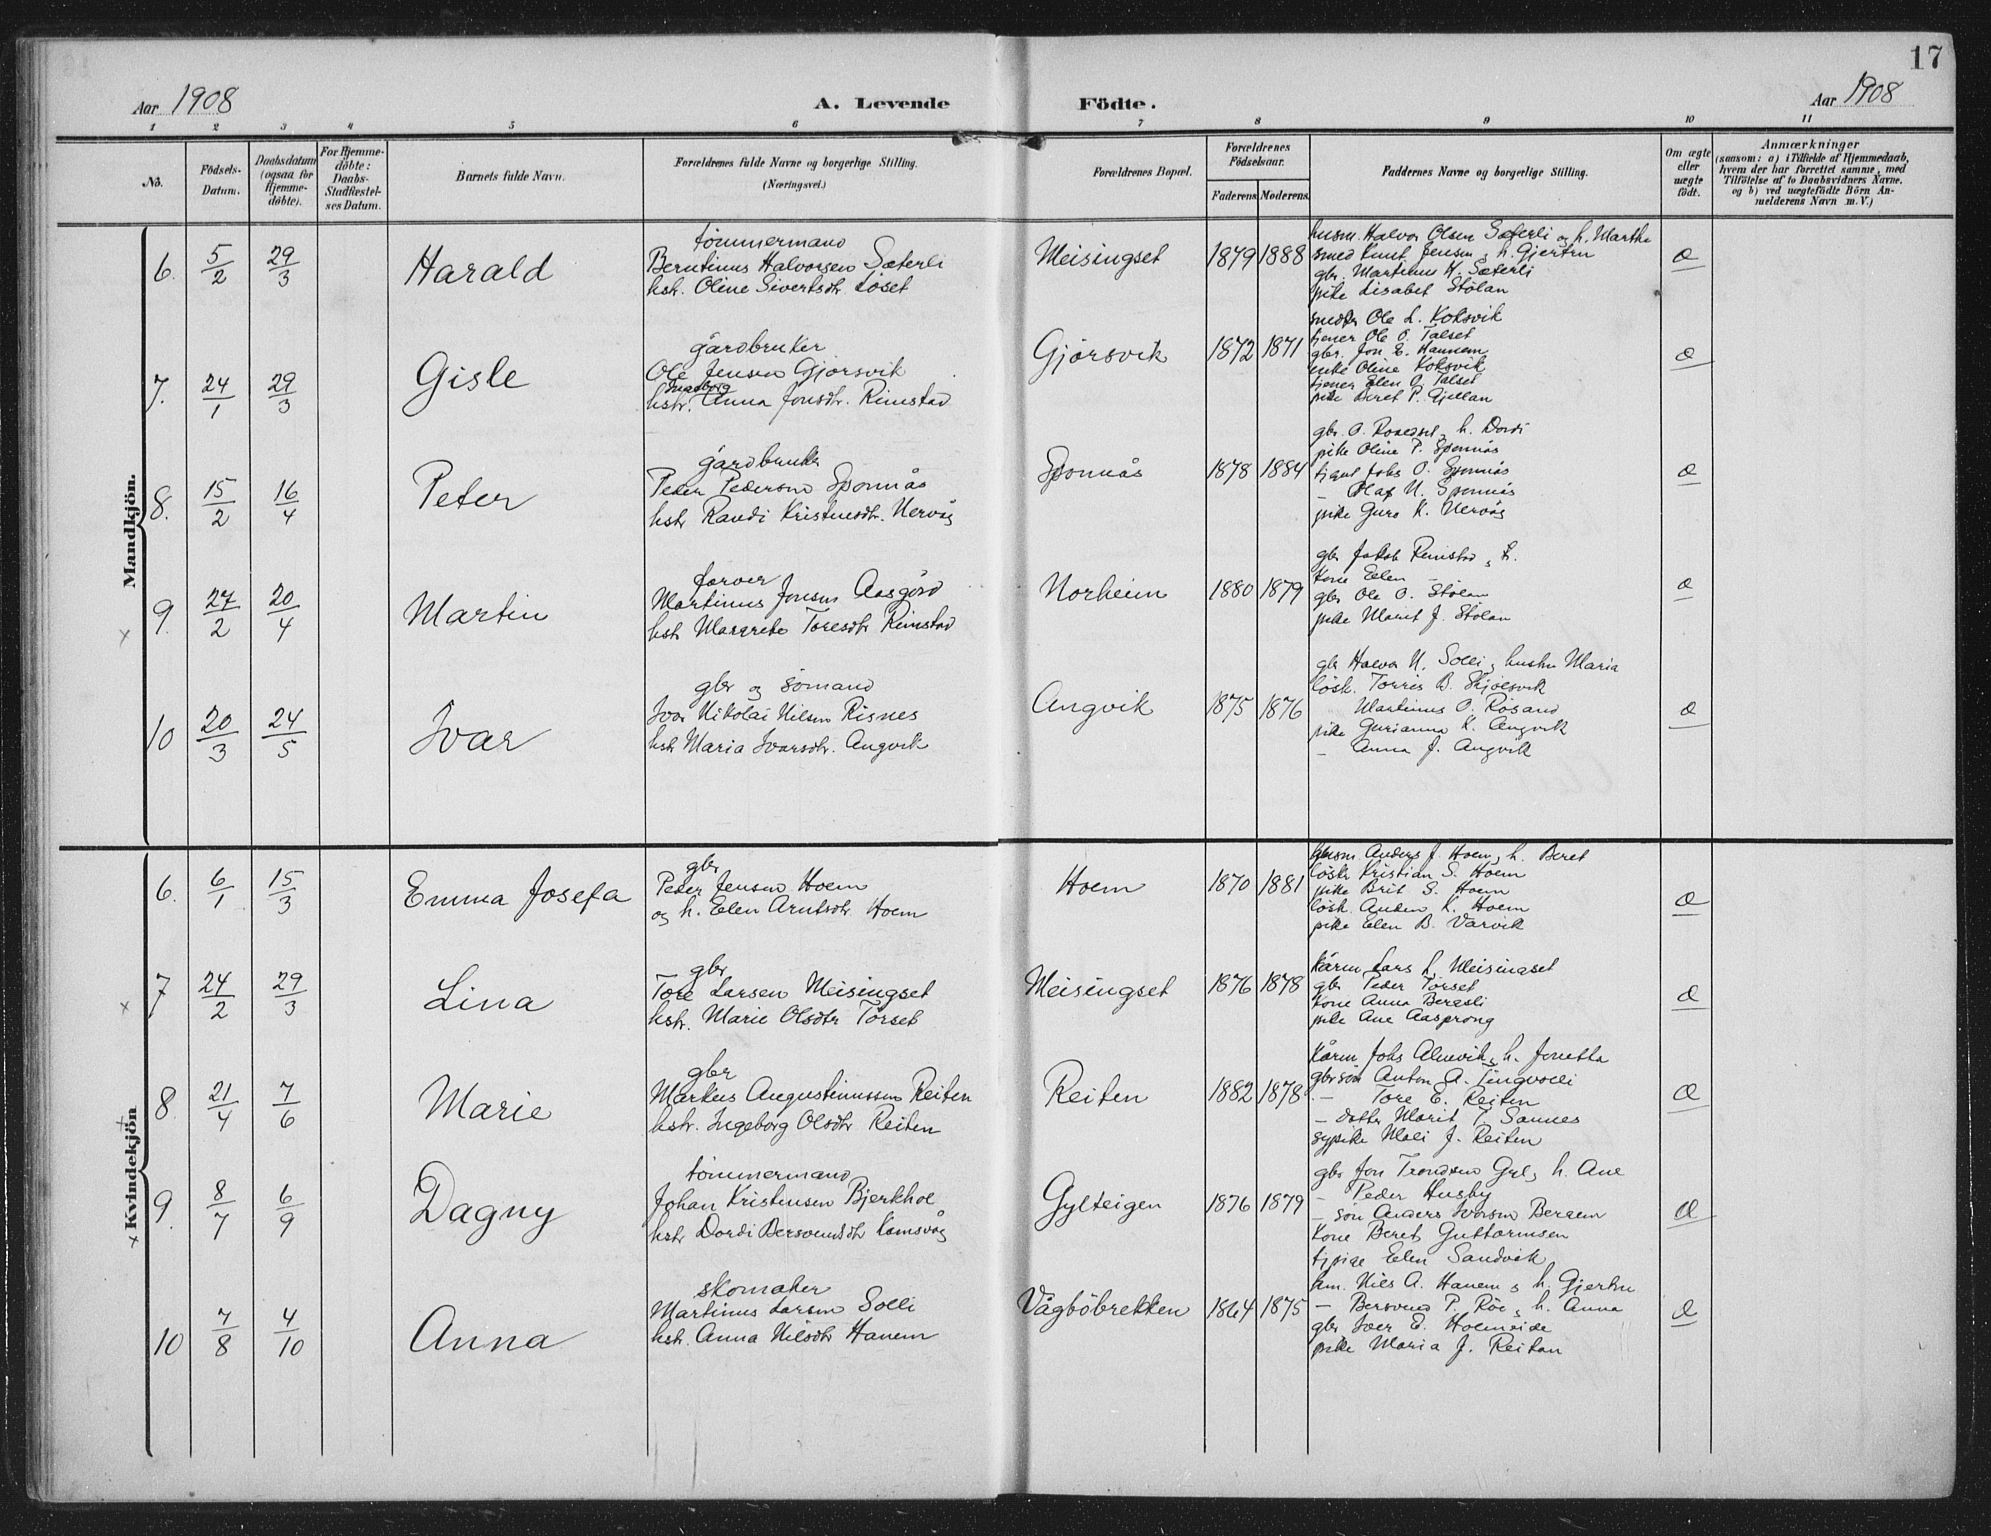 17
Aar 1908 A. Levende Födte. Aar 1908
1 2 3 4 5 6 7 8 9 10 11
No.
Födsels-
Datum.
Daabsdatum
(ogsaa for
Hjemme-
döbte).
For Hjemme-
döbte:
Daabs-
Stadfæstel-
ses Datum.
Barnets fulde Navn.
Forældrenes fulde Navne og borgerlige Stilling.
(Næringsvei.)
Forældrenes Bopæl.
Forældrenes
Födselsaar.
Faderens Moderens
Faddernes Navne og borgerlige Stilling.
Om ægte
eller
uægte
födt.
Anmærkninger
(saasom: a) i Tilfælde af Hjemmedaab,
hvem der har forrettet samme, med
Tilföielse af to Daabsvidners Navne,
og b) ved uægtefödte Börn An-
melderens Navn m. V.)
Mandkjön.
6. 5/2 29/3 Harald
tömmermand
Berntinus Halvorsen Sæterli
hstr. Oline Sivertsdtr. Löset
Meisingset 1879 1888
husm. Halvor Olsen Sæterli og h. Marthe
smed Knut Jensen, h. Gjertru
gbr. Martinus H. Sæterli
pike Lisabet Stölan
æ
7. 24/1 29/3 Gisle
gårdbruker
Ole Jensen Gjörsvik
Ingeborg
hstr. Anna Jonsdtr. Rimstad
Gjörsvik 1872 1871
Ole L. Koksvik
tjener Ole O. Talset
gbr. Jon E. Hannem
enke Oline Koksvik
tjener Elen O. Talset
pike Beret P. Gjellan
æ
8. 15/2 16/4 Peter
gårdbruker
Peter Pedersen Sponnås
hstr Randi Kristensdtr. Nervåg
Sponnås 1878 1884
gbr. O. h. Dordi
pike Oline P. Sponnås
Johs O. Sponnås
– Olaf N. Sponnås
pike Guro K. Nervåg
æ
9. 27/2 20/4 Martin
farver
Martinus Jonsen Aasgård
hstr Margrete Toresdtr Rimstad
Norheim 1880 1879
gbr Jakob Rimstad, h.
kone Elen –
gbr Ole O. Stölan
pike Marit J. Stölan
æ
10 20/3 24/5 Ivar
gbr og sömand
Ivar Nikolai Nilsen Risnes
hstr Maria Ivarsdtr. Angvik
Angvik 1875 1876
gbr Halvor N. Solli, hustru Maria
lösk. Torris B. Skjölsvik
Martinus O. Rosand
pike Gurianna K. Angvik
– Anna J. Angvik
æ
Kvindekjön
6. 6/1 15/3 Emma Josefa
gbr
Peder Jensen Hoem
og h. Elen Arntsdtr. Hoem
Hoem 1870 1881
Anders J. Hoem, h. Beret
löskr Kristian S. Hoem
pike Brit S. Hoem
lösk. Anders K. Hoem
pike Elen B. Varvik
æ
7 24/2 29/3 Lina
gbr
Tore Larsen Meisingset
hstr. Marie Olsdtr Törset
Meisingset 1876 1878
kårm Lars L. Meisingset
gbr Peder Törset
kone Anna Bergsli
pike Ane Aasprong
æ
8. 21/4 7/6 Marie
gbr
Markus Augustinussen Reiten
hstr. Ingeborg Olsdtr Reiten
Reiten 1882 1878
kårm Johs Alnevik, h. Jonetta
gbr sön Anton A. Tingvolli
– Tore E. Reiten
– Datter Marit T. Sannes
sypike Mali J. Reiten
æ
9. 8/7 6/9 Dagny
tömmermand
Johan Kristensen Bjerkhol
hstr Dordi Bersvendsdtr Kamsvåg
Gylteigen 1876 1879
gbr Jon Trondsen Gyl, h. Ane
– Peder Husby
– sön Anders Ivarsen Bergem
Kone Beret Guttormsen
Elen Sandvik
æ
10 7/8 4/10 Anna
skomaker
Martinus Larsen Solli
hstr. Anna Nilsdtr Hanem
Vågböbrekken 1864 1875
Nils A. Hanem, h. Gjertru
– Bersvend P. Röe, h. Anna
gbr Iver E. Holmeide
pike Maria J. Reitan
æ